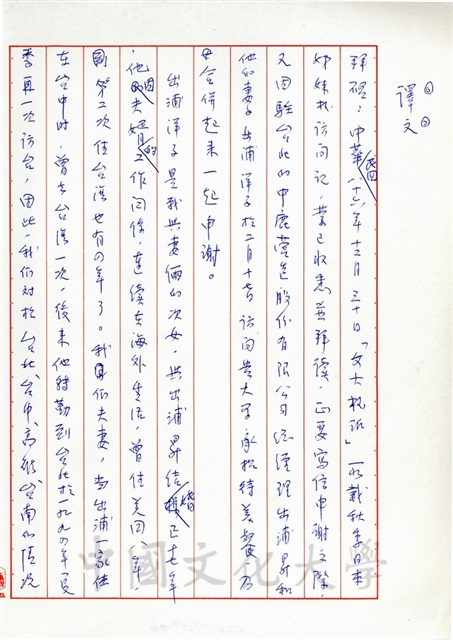 譯文
拜啓:中華民國八十六年十二月三十日「文大校訊」所載秋季日本
姊妹校訪問記,業已收悉並拜讀,正要寫信申謝之際,
又因駐台北的中鹿營造股份有限公司總經理出浦昇和
他的妻子出浦洋子於二月十七訪問貴大學承招待美餐乃
合併起來一起申謝。
出浦洋子是我與妻倆的次女,與出浦昇結婚已十七年
他因夫婿的工作関係,連續在海外生活,曾住美国 年,
第二次住台湾也有四年了。我們夫妻,當出浦一家住
在台中時,曾去台湾一次,後來他轉勤到台北於一九九四年夏
季再一次訪台,因此,我們対於台北、台中、高雄、台南的情況
中國文化大學